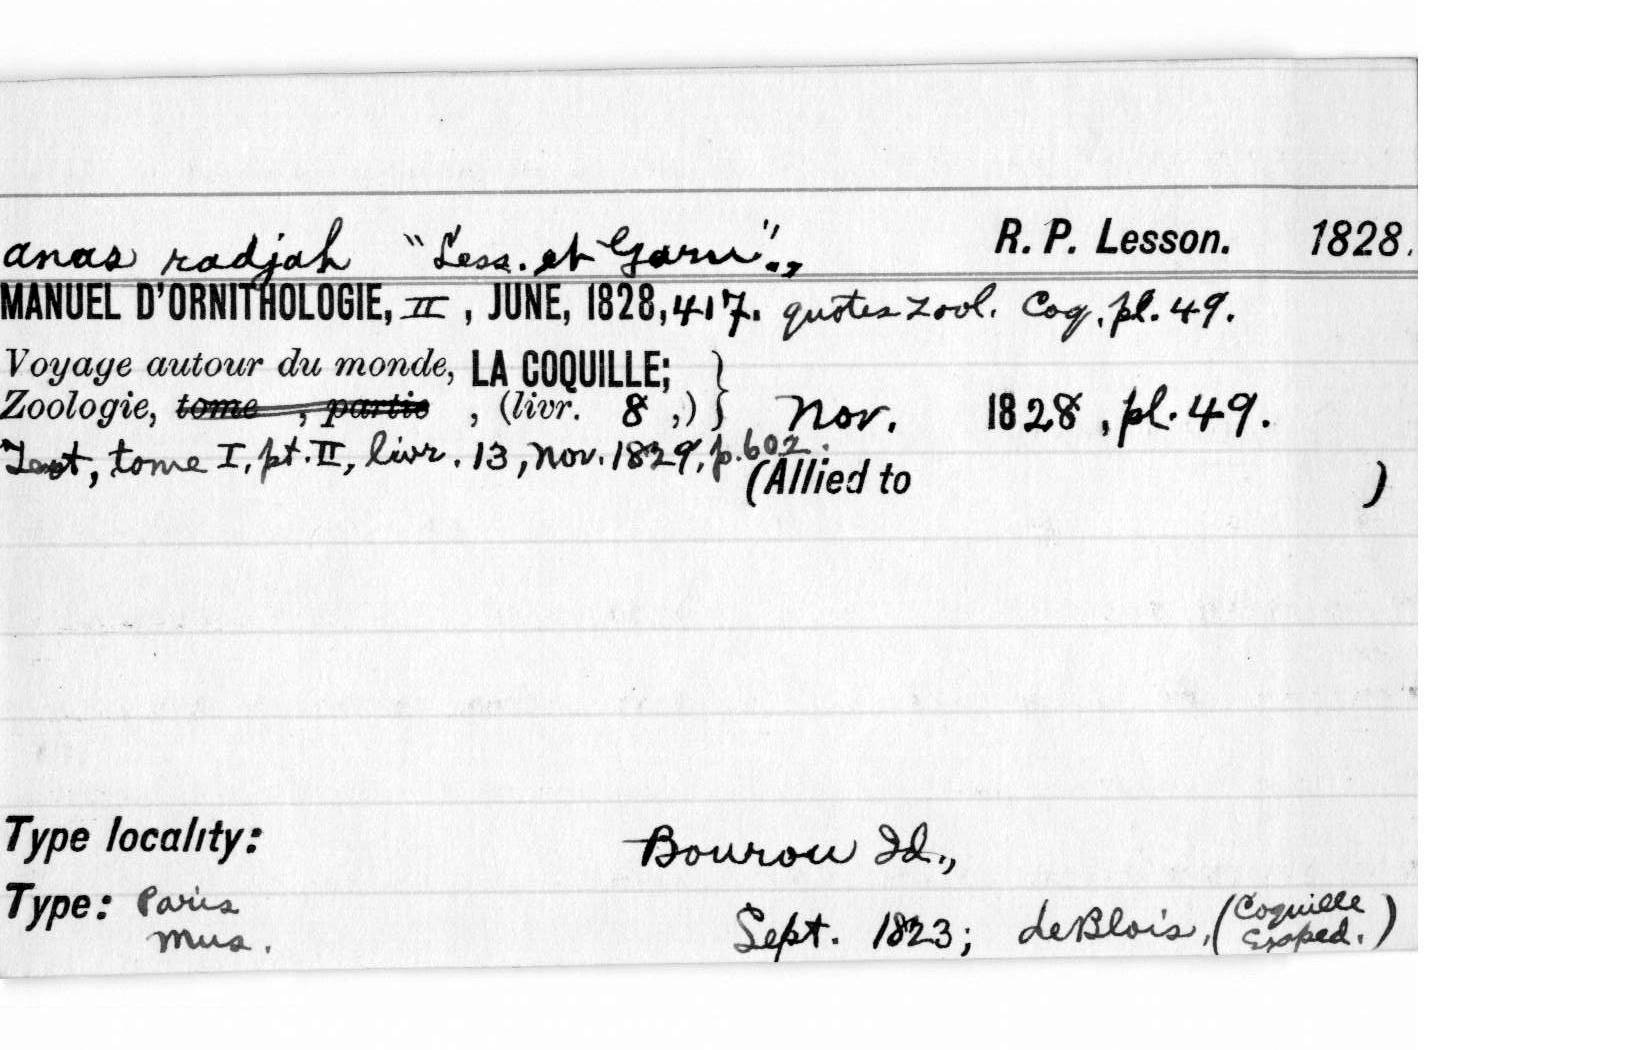 anas radjah "Less. et Garn"., R. P. Lesson. 1828.
MANUEL D'ORNITHOLOGIE, II, JUNE, 1828, 417. quotes Zool. Coq. pl. 49.
Voyage autour du monde, LA COQUILLE; }
Zoologie, tome , partie , (livr. 8 ,) } Nov. 1828, pl. 49.
Text, tome I, pt. II, livr. 13, Nov. 1829, p. 602.
(Allied to )
Type locality: Bourou Id.,
Type: Paris Mus. Sept. 1823; deBlois, (Coquille Exped.)